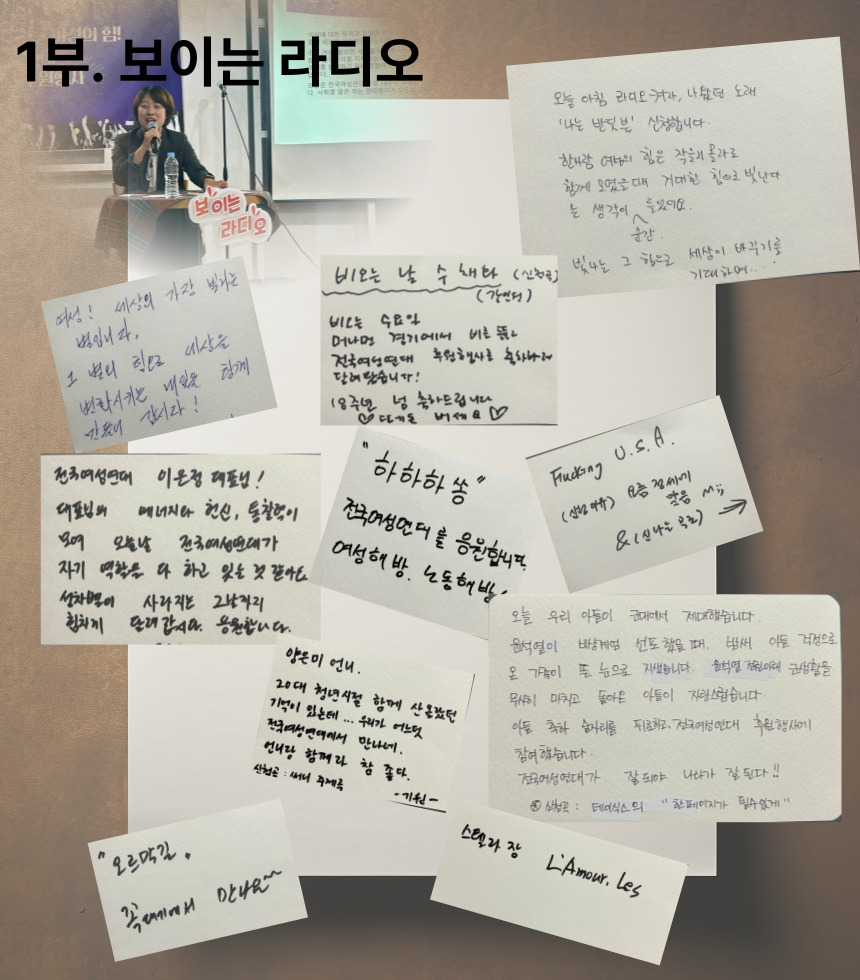 1부. 보이는 라디오
보이는
라디오
오늘 아침 라디오
'나는 반딧불' 신청합니다.
한사람 여성의 힘은 작을지 몰라도
함께 모였을때 거대한 힘으로 빛난다
는 생각이 들었어요.
순간
빛나는 그 힘으로 세상이 바뀌기를
기대하며...!
여성! 세상의 가장 빛나는
별입니다.
그 별의 힘으로 세상을
변화시키는 내일을 함께
만들어 갑시다!
비오는 날 수채화 (신청곡)
(강인원)
비오는 수요일
머나먼 경기에서 비를 뚫고
전국여성연대 후원행사를 축하하러
달려왔습니다!
18주년 넘 축하드립니다
♡ 다같도 버세요 ♡
전국여성연대 이은정 대표님!
대표님의 에너지와 헌신, 통찰력이
모여 오늘날 전국여성연대가
자기 역할을 다 하고 있는 것 같아요
성차별이 사라지는 그날까지
힘차게 달려갑시다. 응원합니다.
"하하하쏭"
전국여성연대를 응원합니다.
여성해방. 노동해방
Fucking U.S.A.
(신청이유) 요즘 정세에
맞음 ;;
& (신나는 곡조) →
양은미 언니.
20대 청년시절 함께 산 올랐던
기억이 있는데... 우리가 어느덧
전국여성연대에서 만나네.
언니랑 함께라 참 좋다.
신청곡 : 써니 주제곡
-기원-
오늘 우리 아들이 군대에서 제대했습니다.
윤석열이 비상계엄 선포했을때. 밤새 아들 걱정으로
온 가족이 뜬 눈으로 지샜습니다. 윤석열 정권아래 군생활을
무사히 마치고 돌아온 아들이 자랑스럽습니다.
아들 축하 술자리를 뒤로하고, 전국여성연대 후원행사에
참여했습니다.
전국여성연대가 잘되야 나라가 잘된다!!
신청곡 : 데이식스의 "한페이지가 될수있게"
"오르막길"
꼭대기에서 만나요~
스텔라장 L'Amour, Les